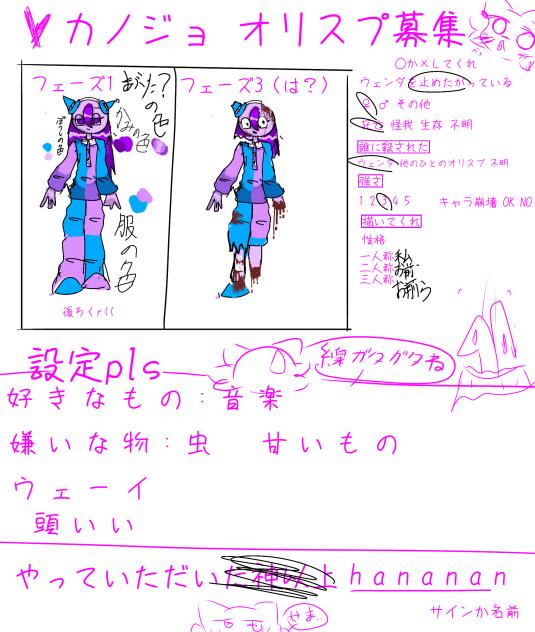 カノジョ オリスプ募集
○か×してくれ
フェーズ1
フェーズ3(は?)
ウェンダを止めたがっている
♀ ♂ その他
怪我 生存 不明
誰に殺された
ウェンダ 他のひとのオリスプ 不明
強さ
1 2 3 4 5 キャラ崩壊 OK NO
描いてくれ
性格
一人称 私
二人称 お前
三人称 お前ら
ぼうしの色
かみの色
服の色
設定pls
線ガタガタね
好きなもの:音楽
嫌いな物:虫 甘いもの
ウェーイ
頭いい
やっていただい
hananan
サインか名前
せま..